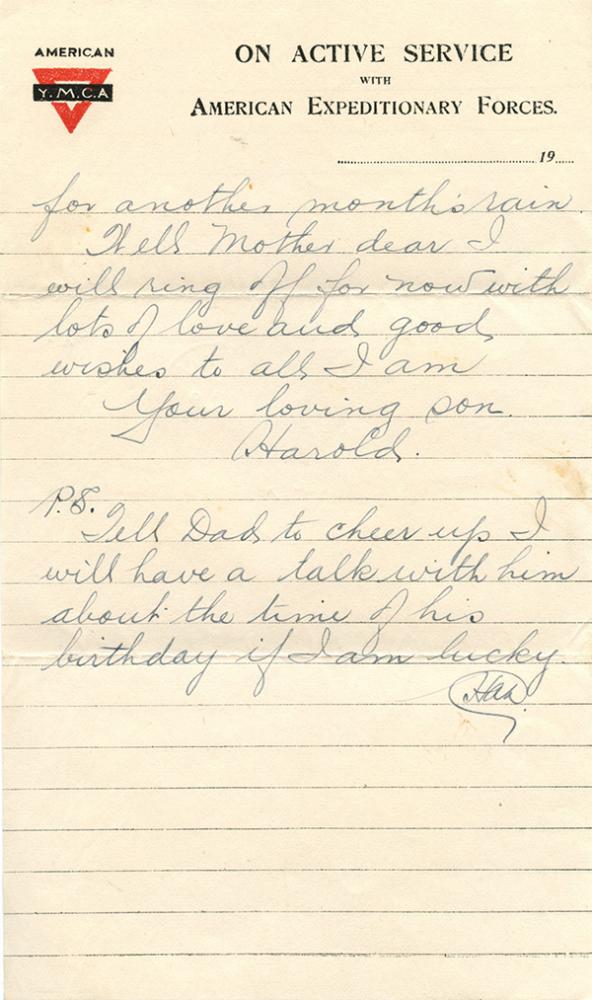 AMERICAN
Y.M.C.A
ON ACTIVE SERVICE
WITH
AMERICAN EXPEDITIONARY FORCES.
19
for another month's rain.
Well Mother dear I
will ring off for now with
lots of love and good
wishes to all I am
Your loving son.
Harold.
P.S.
Tell Dad to cheer up I
will have a talk with him
about the time of his
birthday if I am lucky.